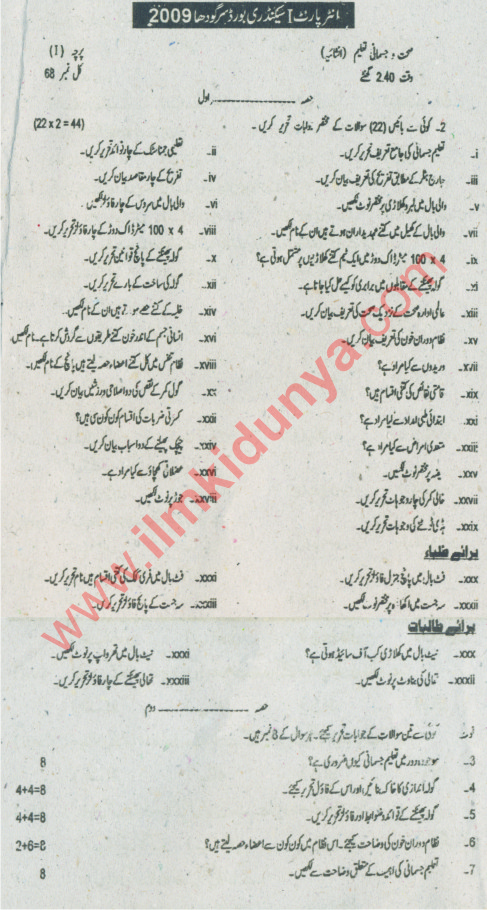 انٹر پارٹ I سیکنڈری بورڈ سرگودھا 2009
صحت و جسمانی تعلیم (انشائیہ) پرچہ (I)
وقت 2.40 گھنٹے کل نمبر 68
حصہ اول
2- کوئی سے بائیس (22) سوالات کے مختصر جوابات تحریر کریں۔ (22 x 2 = 44)
i- تعلیم جسمانی کی جامع تعریف تحریر کریں۔ ii- تعلیمی جمناسٹک کے چار فوائد تحریر کریں۔
iii- جارج بٹلر کے مطابق تفریح کی تعریف بیان کریں۔ iv- تفریح کے چار مقاصد بیان کریں۔
v- والی بال میں لبرو کھلاڑی پر مختصر نوٹ لکھیں۔ vi- والی بال میں سروس کے چار فاؤلز لکھیں۔
vii- والی بال کے کھیل میں کتنے عہدیداران ہوتے ہیں ان کے نام لکھیں۔ viii- 4 x 100 میٹر ڈاک دوڑ کے چار فاؤلز تحریر کریں۔
ix- 4 x 100 میٹر ڈاک دوڑ میں ایک ٹیم کتنے کھلاڑیوں پر مشتمل ہوتی ہے؟ x- گولہ پھینکنے کے پانچ قوانین تحریر کریں۔
xi- گولہ پھینکنے کے مقابلوں میں برابری کو کیسے حل کیا جاتا ہے۔ xii- گولہ کی ساخت کے بارے تحریر کریں۔
xiii- عالمی ادارہ صحت کے نزدیک صحت کی تعریف بیان کریں۔ xiv- خلیہ کے کتنے حصے ہوتے ہیں ان کے نام لکھیں۔
xv- نظام دوران خون کی تعریف بیان کریں۔ xvi- انسانی جسم کے اندر خون کتنے طریقوں سے گردش کرتا ہے۔ نام لکھیں
xvii- وریدوں سے کیا مراد ہے؟ xviii- نظام تنفس میں کل کتنے اعضاء حصہ لیتے ہیں پانچ کے نام لکھیں۔
xix- قامتی نقائص کی کتنی اقسام ہیں؟ xx- گول کمر کے نقص کی دو اصلاحی ورزشیں بیان کریں۔
xxi- ابتدائی طبی امداد سے کیا مراد ہے؟ xxii- کسرتی ضربات کی اقسام کون کون سی ہیں؟
xxiii- متعدی امراض سے کیا مراد ہے؟ xxiv- چیچک پھیلنے کے دو اسباب بیان کریں۔
xxv- ہیضہ پر مختصر نوٹ لکھیں۔ xxvi- عضلاتی کھچاؤ سے کیا مراد ہے۔
xxvii- خالی کمر کی چار وجوہات تحریر کریں۔ xxviii- جوڑ پر نوٹ لکھیں۔
xxix- ہڈی ٹوٹنے کی وجوہات تحریر کریں۔
برائے طلباء
xxx- فٹ بال میں پانچ جنرل فاؤلز تحریر کریں۔ xxxi- فٹ بال میں فری کک کی کتنی اقسام ہیں نام تحریر کریں۔
xxxii- سہ جست میں اکھاڑہ پر مختصر نوٹ لکھیں۔ xxxiii- سہ جست کے پانچ فاؤلز تحریر کریں۔
برائے طالبات
xxx- نیٹ بال میں کھلاڑی کب آف سائیڈ ہوتی ہے؟ xxxi- نیٹ بال میں تھرو اپ پر نوٹ لکھیں۔
xxxii- تھالی کی بناوٹ پر نوٹ لکھیں۔ xxxiii- تھالی پھینکنے کے چار فاؤلز تحریر کریں۔
حصہ دوم
نوٹ کوئی سے تین سوالات کے جوابات تحریر کیجئے۔ ہر سوال کے 8 نمبر ہیں۔
3- موجودہ دور میں تعلیم جسمانی کیوں ضروری ہے؟ 8
4- گولہ اندازی کا خاکہ بنائیں اور اس کے فاؤل تحریر کیجئے۔ 4+4=8
5- گولہ پھینکنے کے قواعد و ضوابط اور فاؤلز تحریر کریں۔ 4+4=8
6- نظام دوران خون کی وضاحت کیجئے۔ اس نظام میں کون کون سے اعضاء حصہ لیتے ہیں؟ 2+6=8
7- تعلیم جسمانی کی اہمیت کے متعلق وضاحت سے لکھیں۔ 8
www.ilmkidunya.com